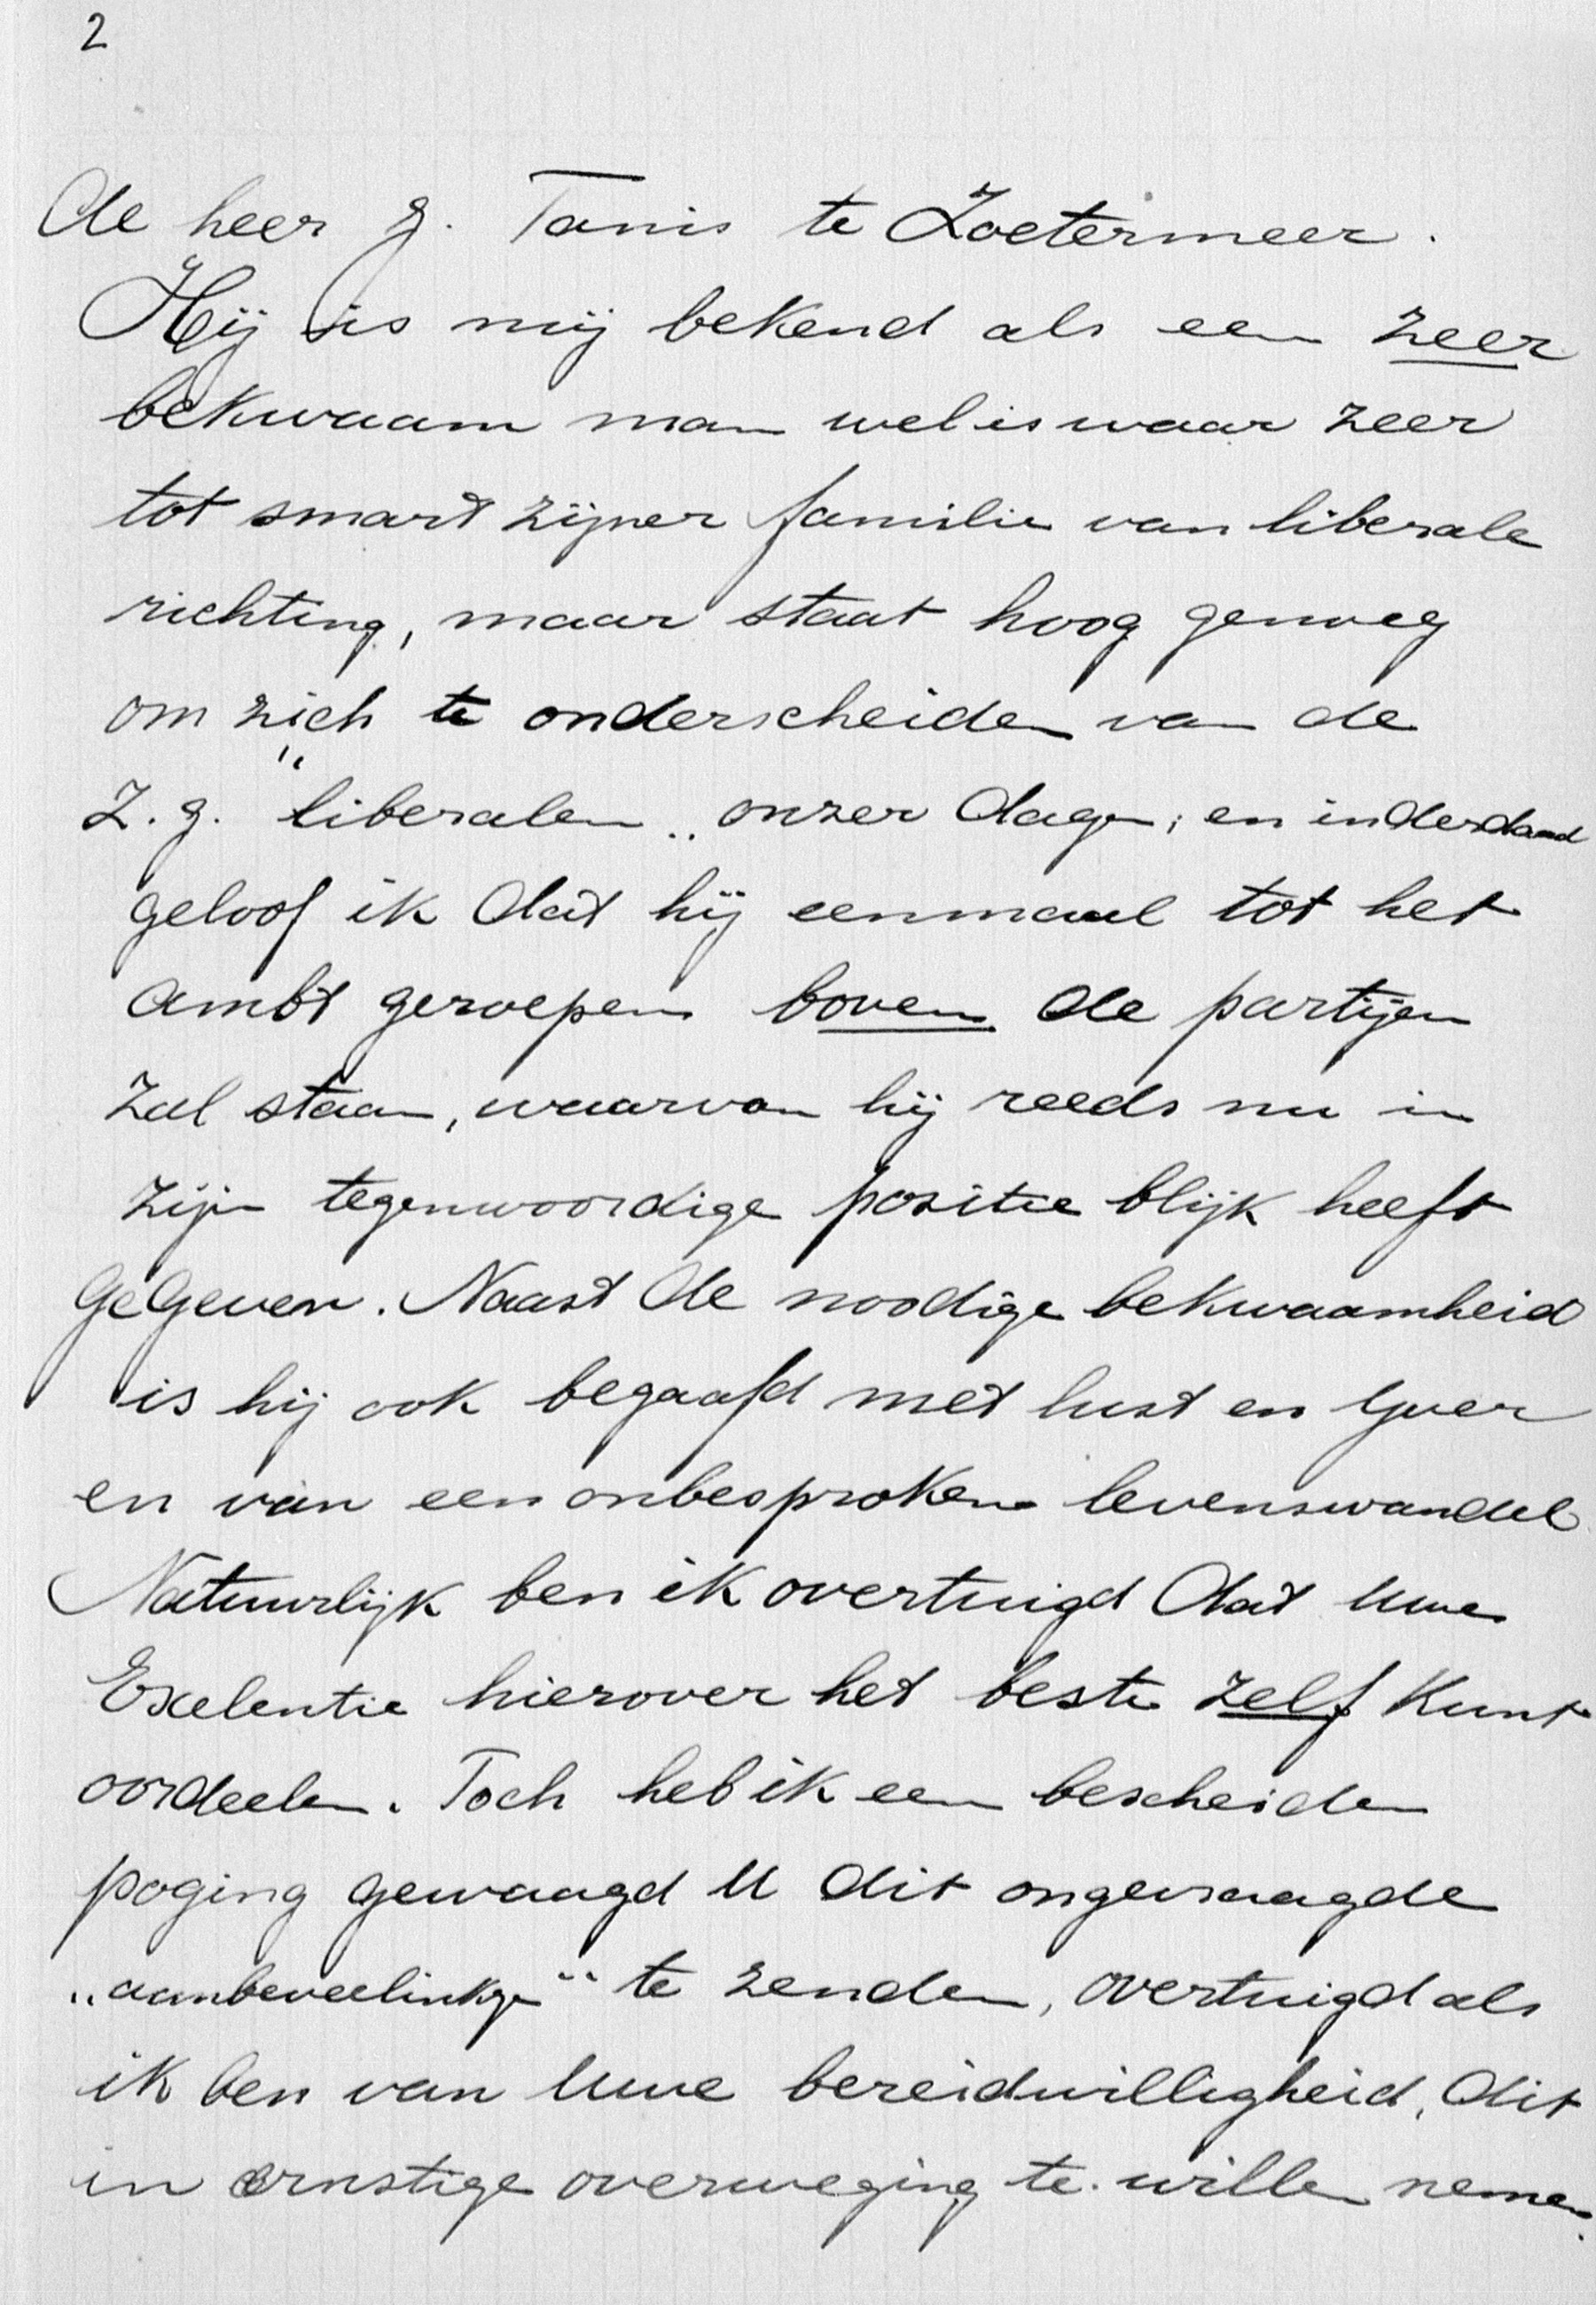 2
de heer J. Tanis te Zoetermeer.
Hij is mij bekend als een zeer
bekwaam man weliswaar zeer
tot smart zijner familie van liberale
richting, maar staat hoog genoeg
om zich te onderscheiden van de
z.g. "liberalen" onzer dagen; en inderdaad
geloof ik dat hij eenmaal tot het
ambt geroepen boven de partijen
zal staan, waarvan hij reeds nu in
zijn tegenwoordige positie blijk heeft
gegeven. Naast de noodige bekwaamheid
is hij ook begaafd met lust en ijver
en van een onbesproken levenswandel.
Natuurlijk ben ik overtuigd dat Uwe
Exelentie hierover het beste zelf kunt
oordeelen. Toch heb ik een bescheiden
poging gewaagd U dit ongevraagde
„aanbeveelinkje" te zenden, overtuigd als
ik ben van Uwe bereidwilligheid, dit
in ernstige overweging te willen nemen.